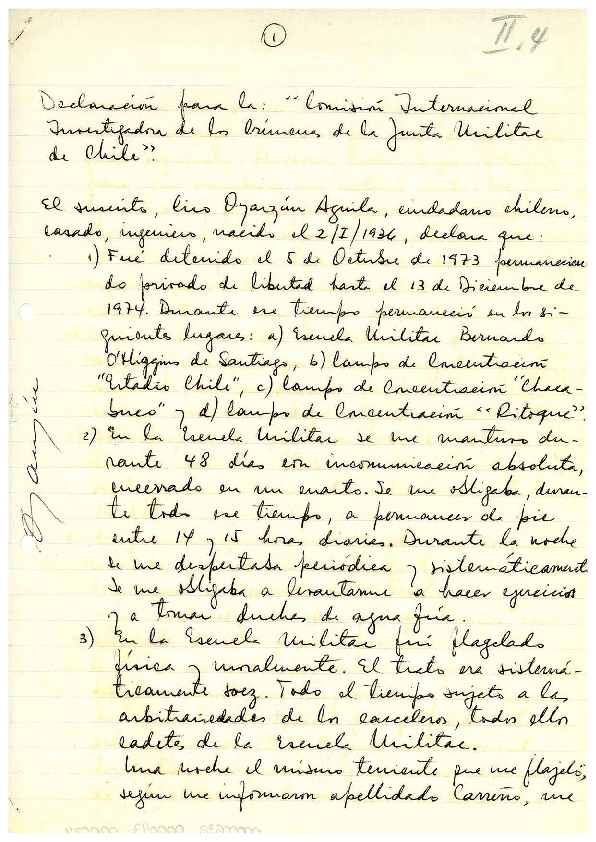 1
II.4
Declaración para la: "Comisión Internacional
Investigadora de los Crímenes de la Junta Militar
de Chile".
El suscrito, Ciro Oyarzún Aguila, ciudadano chileno,
casado, ingeniero, nacido el 2/I/1936, declara que:
1) Fué detenido el 5 de Octubre de 1973 permanecien-
do privado de libertad hasta el 13 de Diciembre de
1974. Durante ese tiempo permaneció en los si-
guientes lugares: a) Escuela Militar Bernardo
O'Higgins de Santiago, b) Campo de Concentración
"Estadio Chile", c) Campo de Concentración "Chaca-
buco" y d) Campo de Concentración "Ritoque".
2) En la Escuela Militar se me mantuvo du-
rante 48 días con incomunicación absoluta,
encerrado en un cuarto. Se me obligaba, duran-
te todo ese tiempo, a permanecer de pie
entre 14 y 15 horas diarias. Durante la noche
se me despertaba periódica y sistemáticamente
Se me obligaba a levantarme a hacer ejercicios
y a tomar duchas de agua fría.
3) En la Escuela Militar fuí flagelado
física y moralmente. El trato era sistemá-
ticamente soez. Todo el tiempo sujeto a las
arbitrariedades de los carceleros, todos ellos
cadetes de la Escuela Militar.
Una noche el mismo teniente que me flageló,
según me informaron apellidado Carreño, me
Oyarzún